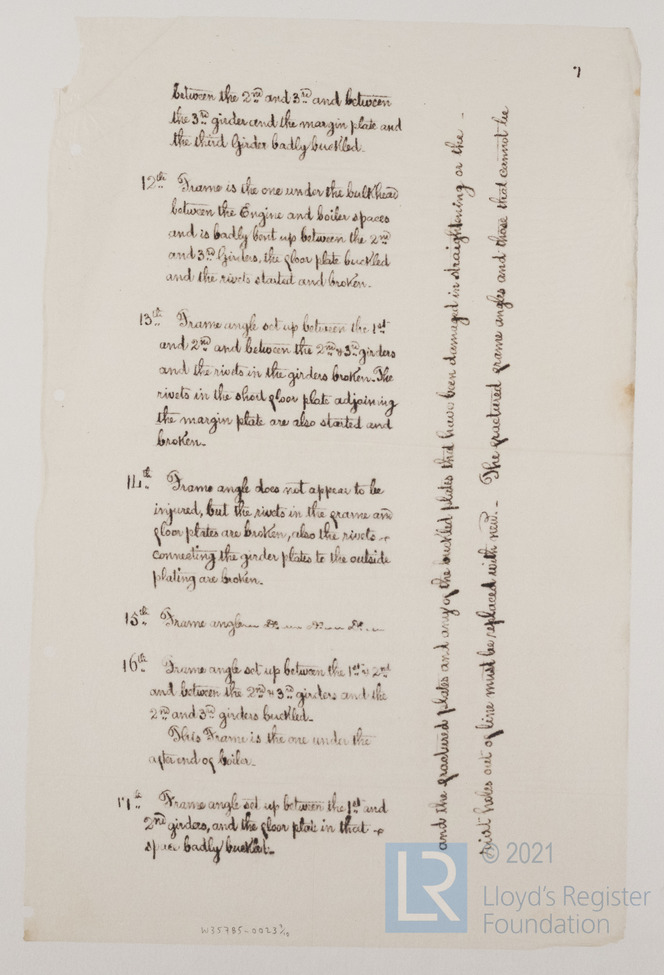 7
between the 2nd and 3rd and between
the 3rd girder and the margin plate and
the third Girder badly buckled.
12th Frame is the one under the bulkhead
between the Engine and boiler spaces
and is badly bent up between the 2nd
and 3rd Girders, the floor plate buckled
and the rivets started and broken.
13th Frame angle set up between the 1st
and 2nd and between the 2nd & 3rd girders
and the rivets in the girders broken. The
rivets in the short floor plate adjoining
the margin plate are also started and
broken.
14th Frame angle does not appear to be
injured, but the rivets in the frame and
floor plates are broken, also the rivets
connecting the girder plates to the outside
plating are broken.
15th Frame angle Do Do Do
16th Frame angle set up between the 1st & 2nd
and between the 2nd & 3rd girders and the
2nd and 3rd girders buckled.
This Frame is the one under the
after end of boiler.
17th Frame angle set up between the 1st and
2nd girders, and the floor plate in that
space badly buckled.
and the fractured plates and any of the buckled plates that have been damaged in straightening or the
rivet holes out of line must be replaced with new. The fractured frame angles and those that cannot be
W35785-0023 7/10
LR
© 2021
Lloyd's Register
Foundation